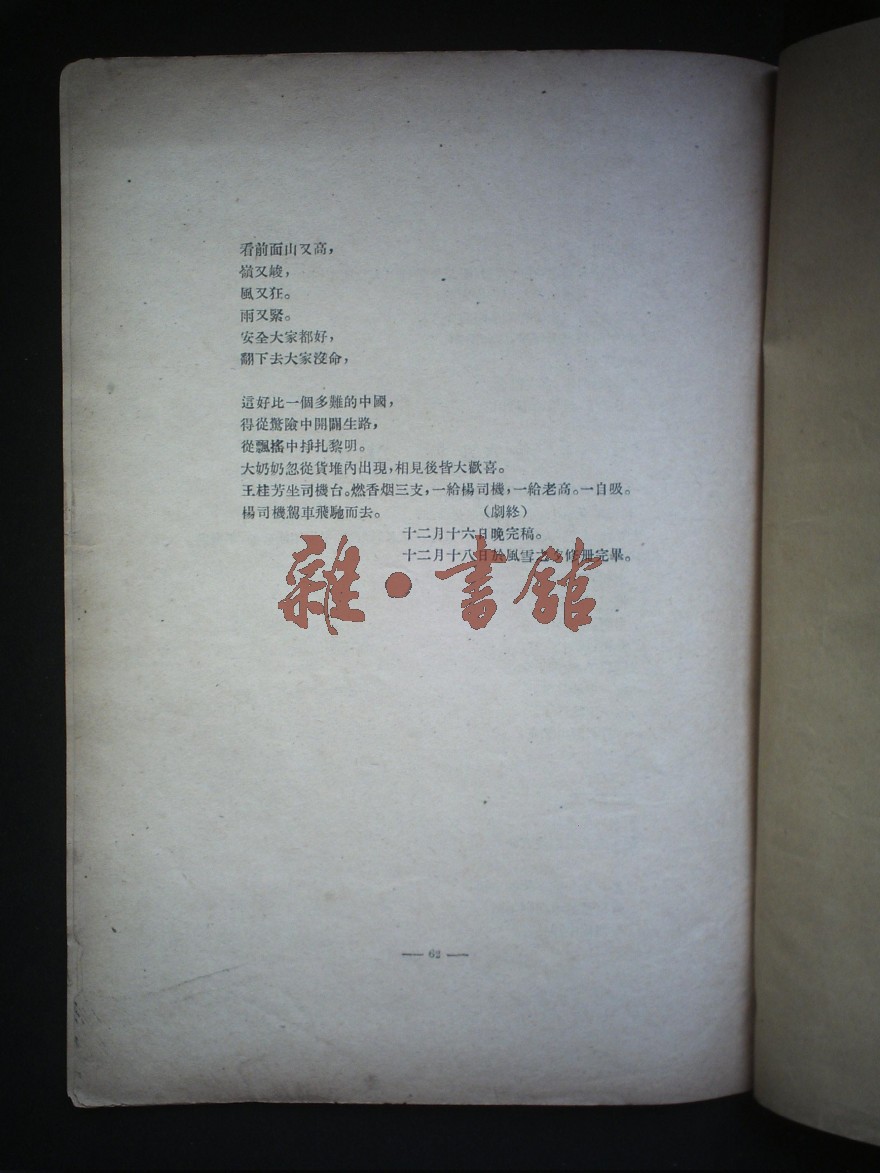 看前面山又高，
嶺又峻，
風又狂。
雨又緊。
安全大家都好，
翻下去大家沒命，
這好比一個多難的中國，
得從驚險中開闢生路，
從飄搖中掙扎黎明。
大奶奶忽從貨堆內出現，相見後皆大歡喜。
王桂芳坐司機台。燃香烟三支，一給楊司機，一給老高。一自吸。
楊司機駕車飛馳而去。 （劇終）
十二月十六日晚完稿。
十二月十八日於風雪之修刪完畢。
雜·書館
— 62 —